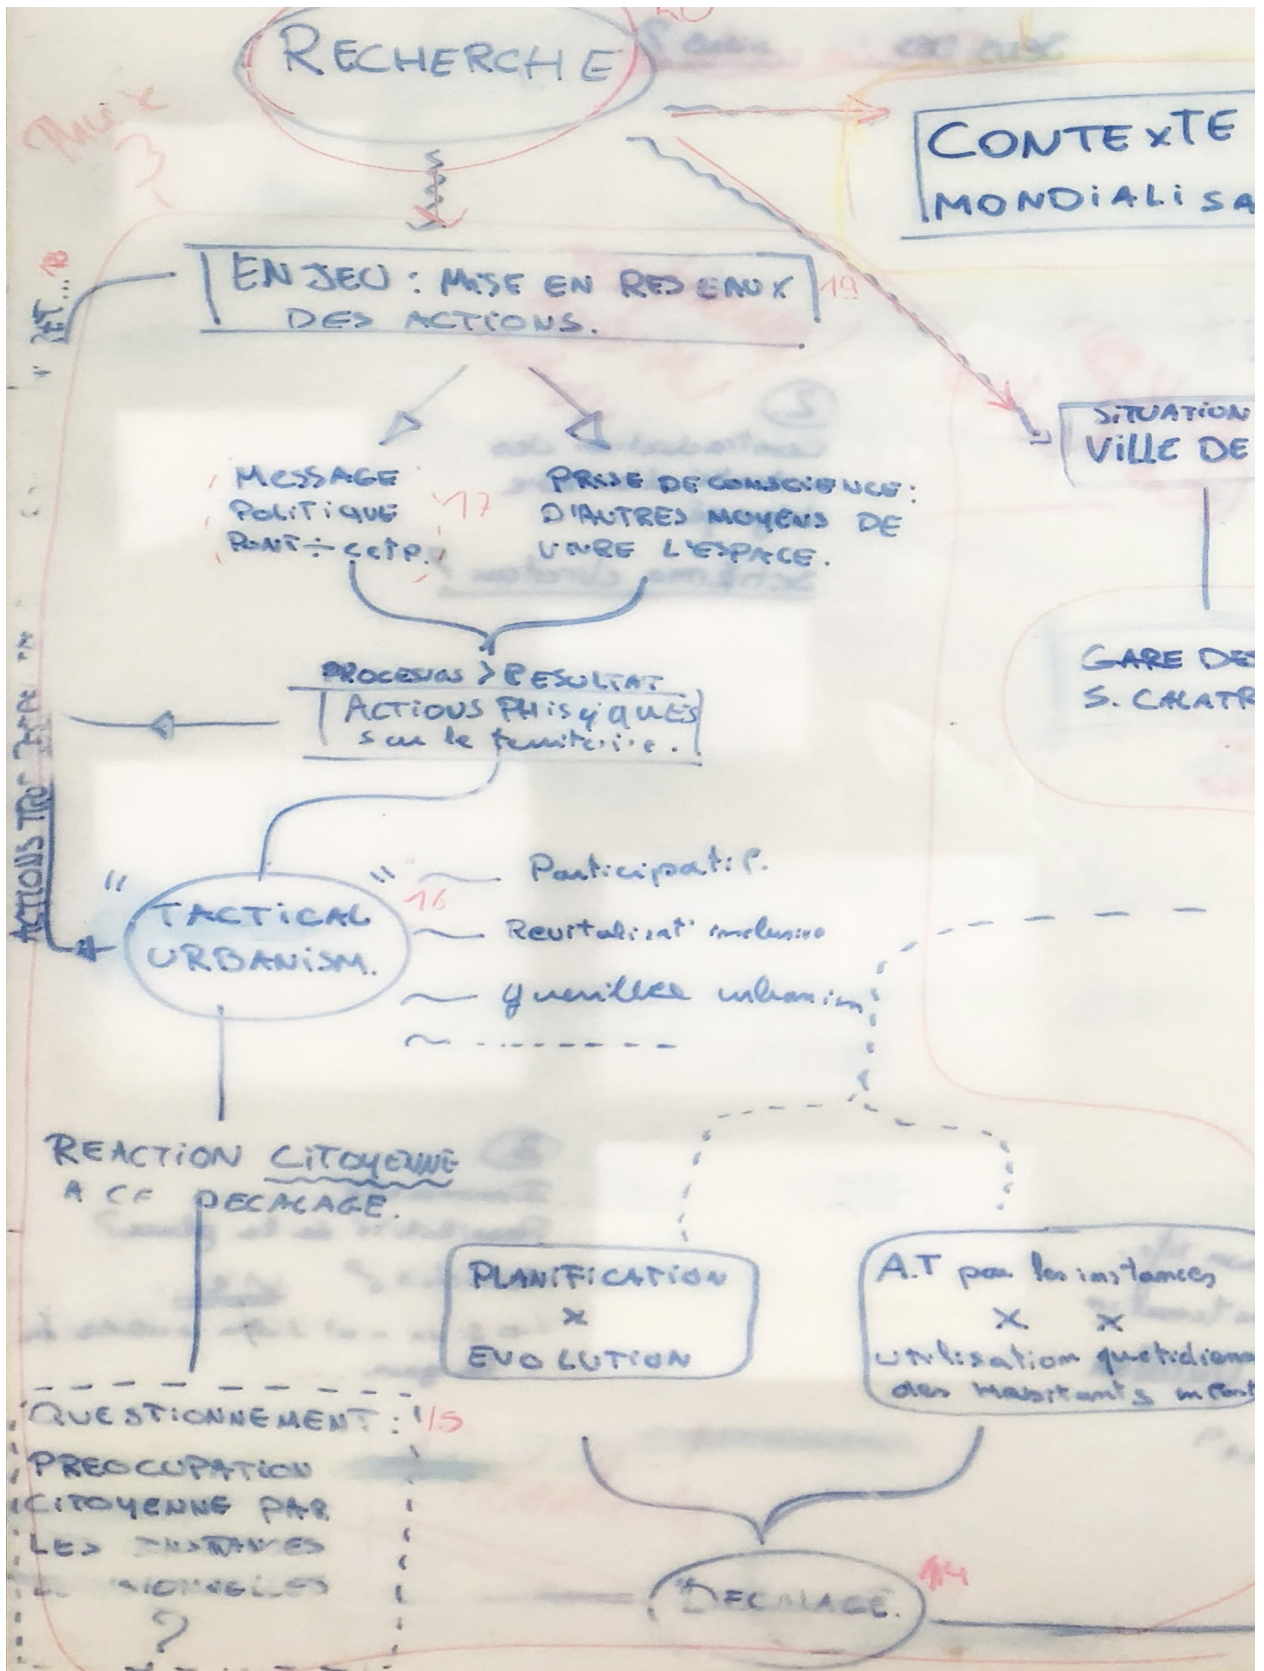 RECHERCHE
CONTEXTE
MONDIALISA
18
ENJEU : MISE EN RESEAUX
DES ACTIONS.
19
SITUATION
VILLE DE
MESSAGE
POLITIQUE
17
PRISE DE CONSCIENCE :
D'AUTRES MOYENS DE
VIVRE L'ESPACE.
GARE DES
S. CALATR
PROCESSUS > RESULTAT
ACTIONS PHISYIQUES
sur le territoire.
ACTIONS
"TACTICAL
URBANISM."
16
Participatif.
Revitalisat° inclusive
guerilla urbanism
REACTION CITOYENNE
A CE DECALAGE.
PLANIFICATION
x
EVOLUTION
A.T par les instances
x x
utilisation quotidienne
des habitants
QUESTIONNEMENT :
15
PREOCUPATION
CITOYENNE PAR
LES INSTANCES
?
DECALAGE.
14